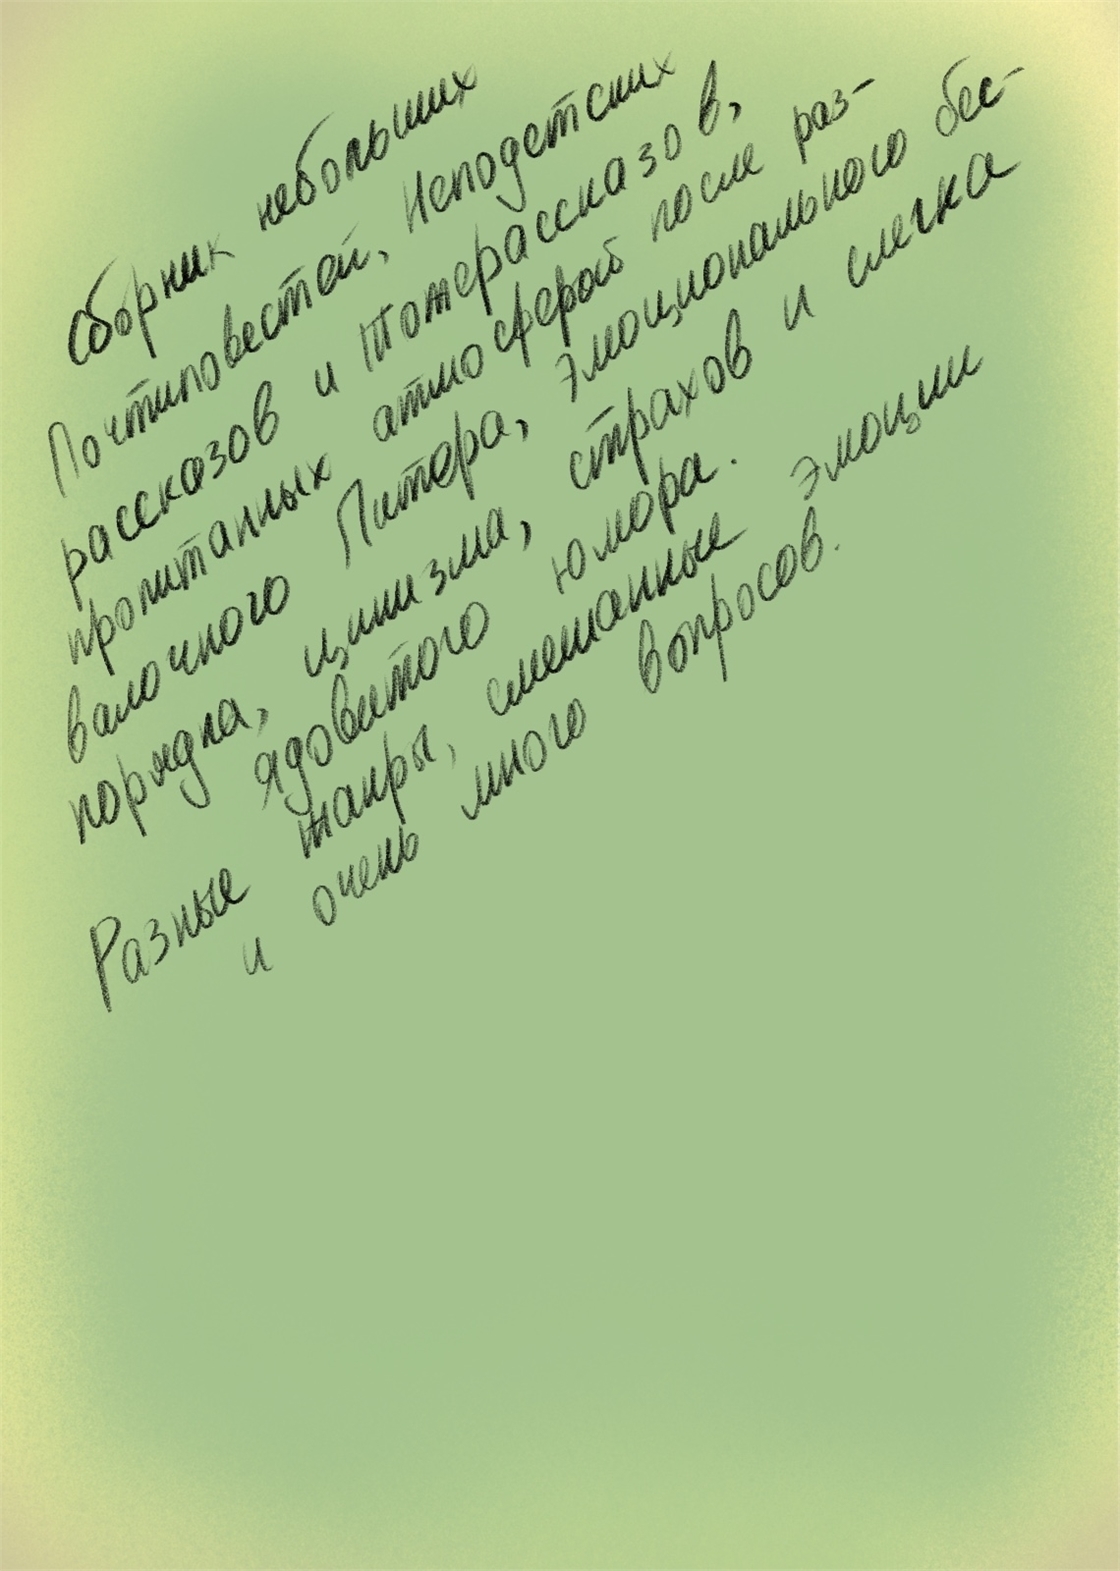 Сборник небольших
Почтиповестей, Неподетских
рассказов и Тожерассказов,
пропитанных атмосферой после раз-
валочного Питера, эмоционального бес-
порядка, цинизма, страхов и слегка
ядовитого юмора.
Разные жанры, смешанные эмоции
и очень много вопросов.